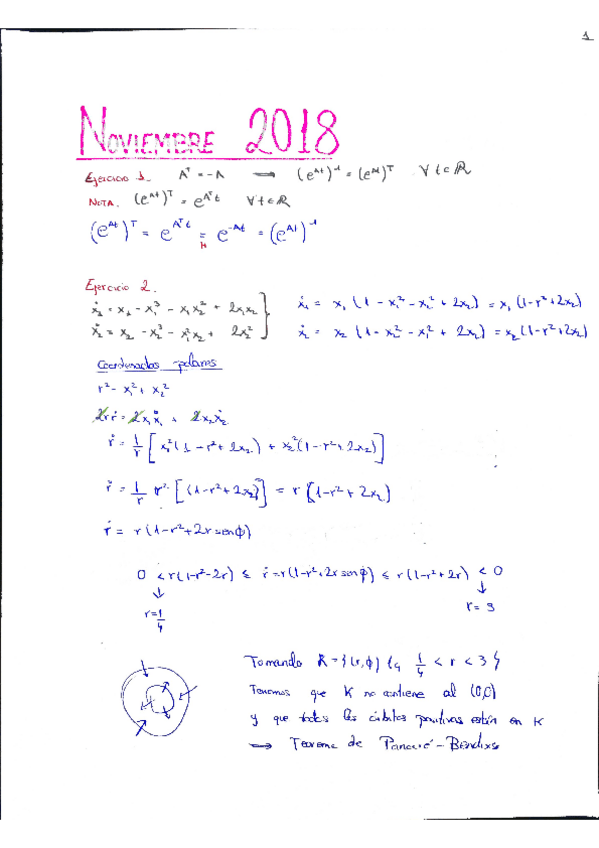 1
NOVIEMBRE 2018
Ejercicio 1. Aᵀ = -A → (e^{At})^{-1} = (e^{At})ᵀ ∀t∈ℝ
NOTA. (e^{At})ᵀ = e^{Aᵀt} ∀t∈ℝ
(e^{At})ᵀ = e^{Aᵀt} = e^{-At} = (e^{At})^{-1}
H
Ejercicio 2.
ẋ₁ = x₁ - x₁³ - x₁x₂² + 2x₁x₂ } ẋ₁ = x₁ (1 - x₁² - x₂² + 2x₂) = x₁ (1-r²+2x₂)
ẋ₂ = x₂ - x₂³ - x₁²x₂ + 2x₂² } ẋ₂ = x₂ (1 - x₂² - x₁² + 2x₂) = x₂ (1-r²+2x₂)
Coordenadas polares
r² = x₁² + x₂²
2rṙ = 2x₁ẋ₁ + 2x₂ẋ₂
ṙ = 1/r [x₁² (1 - r² + 2x₂) + x₂² (1 - r² + 2x₂)]
ṙ = 1/r r² [(1-r²+2x₂)] = r [1-r²+2x₂)
ṙ = r (1-r²+2r senϕ)
0 < r(1-r²-2r) ≤ ṙ = r(1-r²+2r senϕ) ≤ r(1-r²+2r) < 0
↓ ↓
r = 1/4 r = 3
Tomando K = {(r,ϕ) tq 1/4 < r < 3}
Tenemos que K no contiene al (0,0)
y que todas las órbitas positivas están en K
→ Teorema de Poncaré-Bendixs